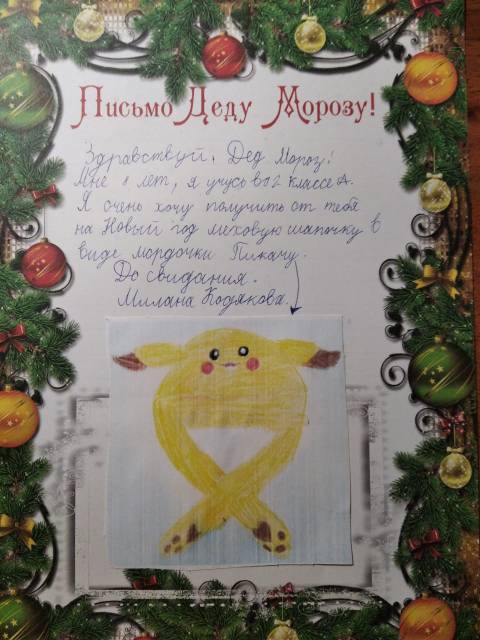 Письмо Деду Морозу!
Здравствуй, Дед Мороз!
Мне 8 лет, я учусь во 2 классе А.
Я очень хочу получить от тебя
на Новый год меховую шапочку в
виде мордочки Пикачу.
До свидания.
Милана Кодякова.